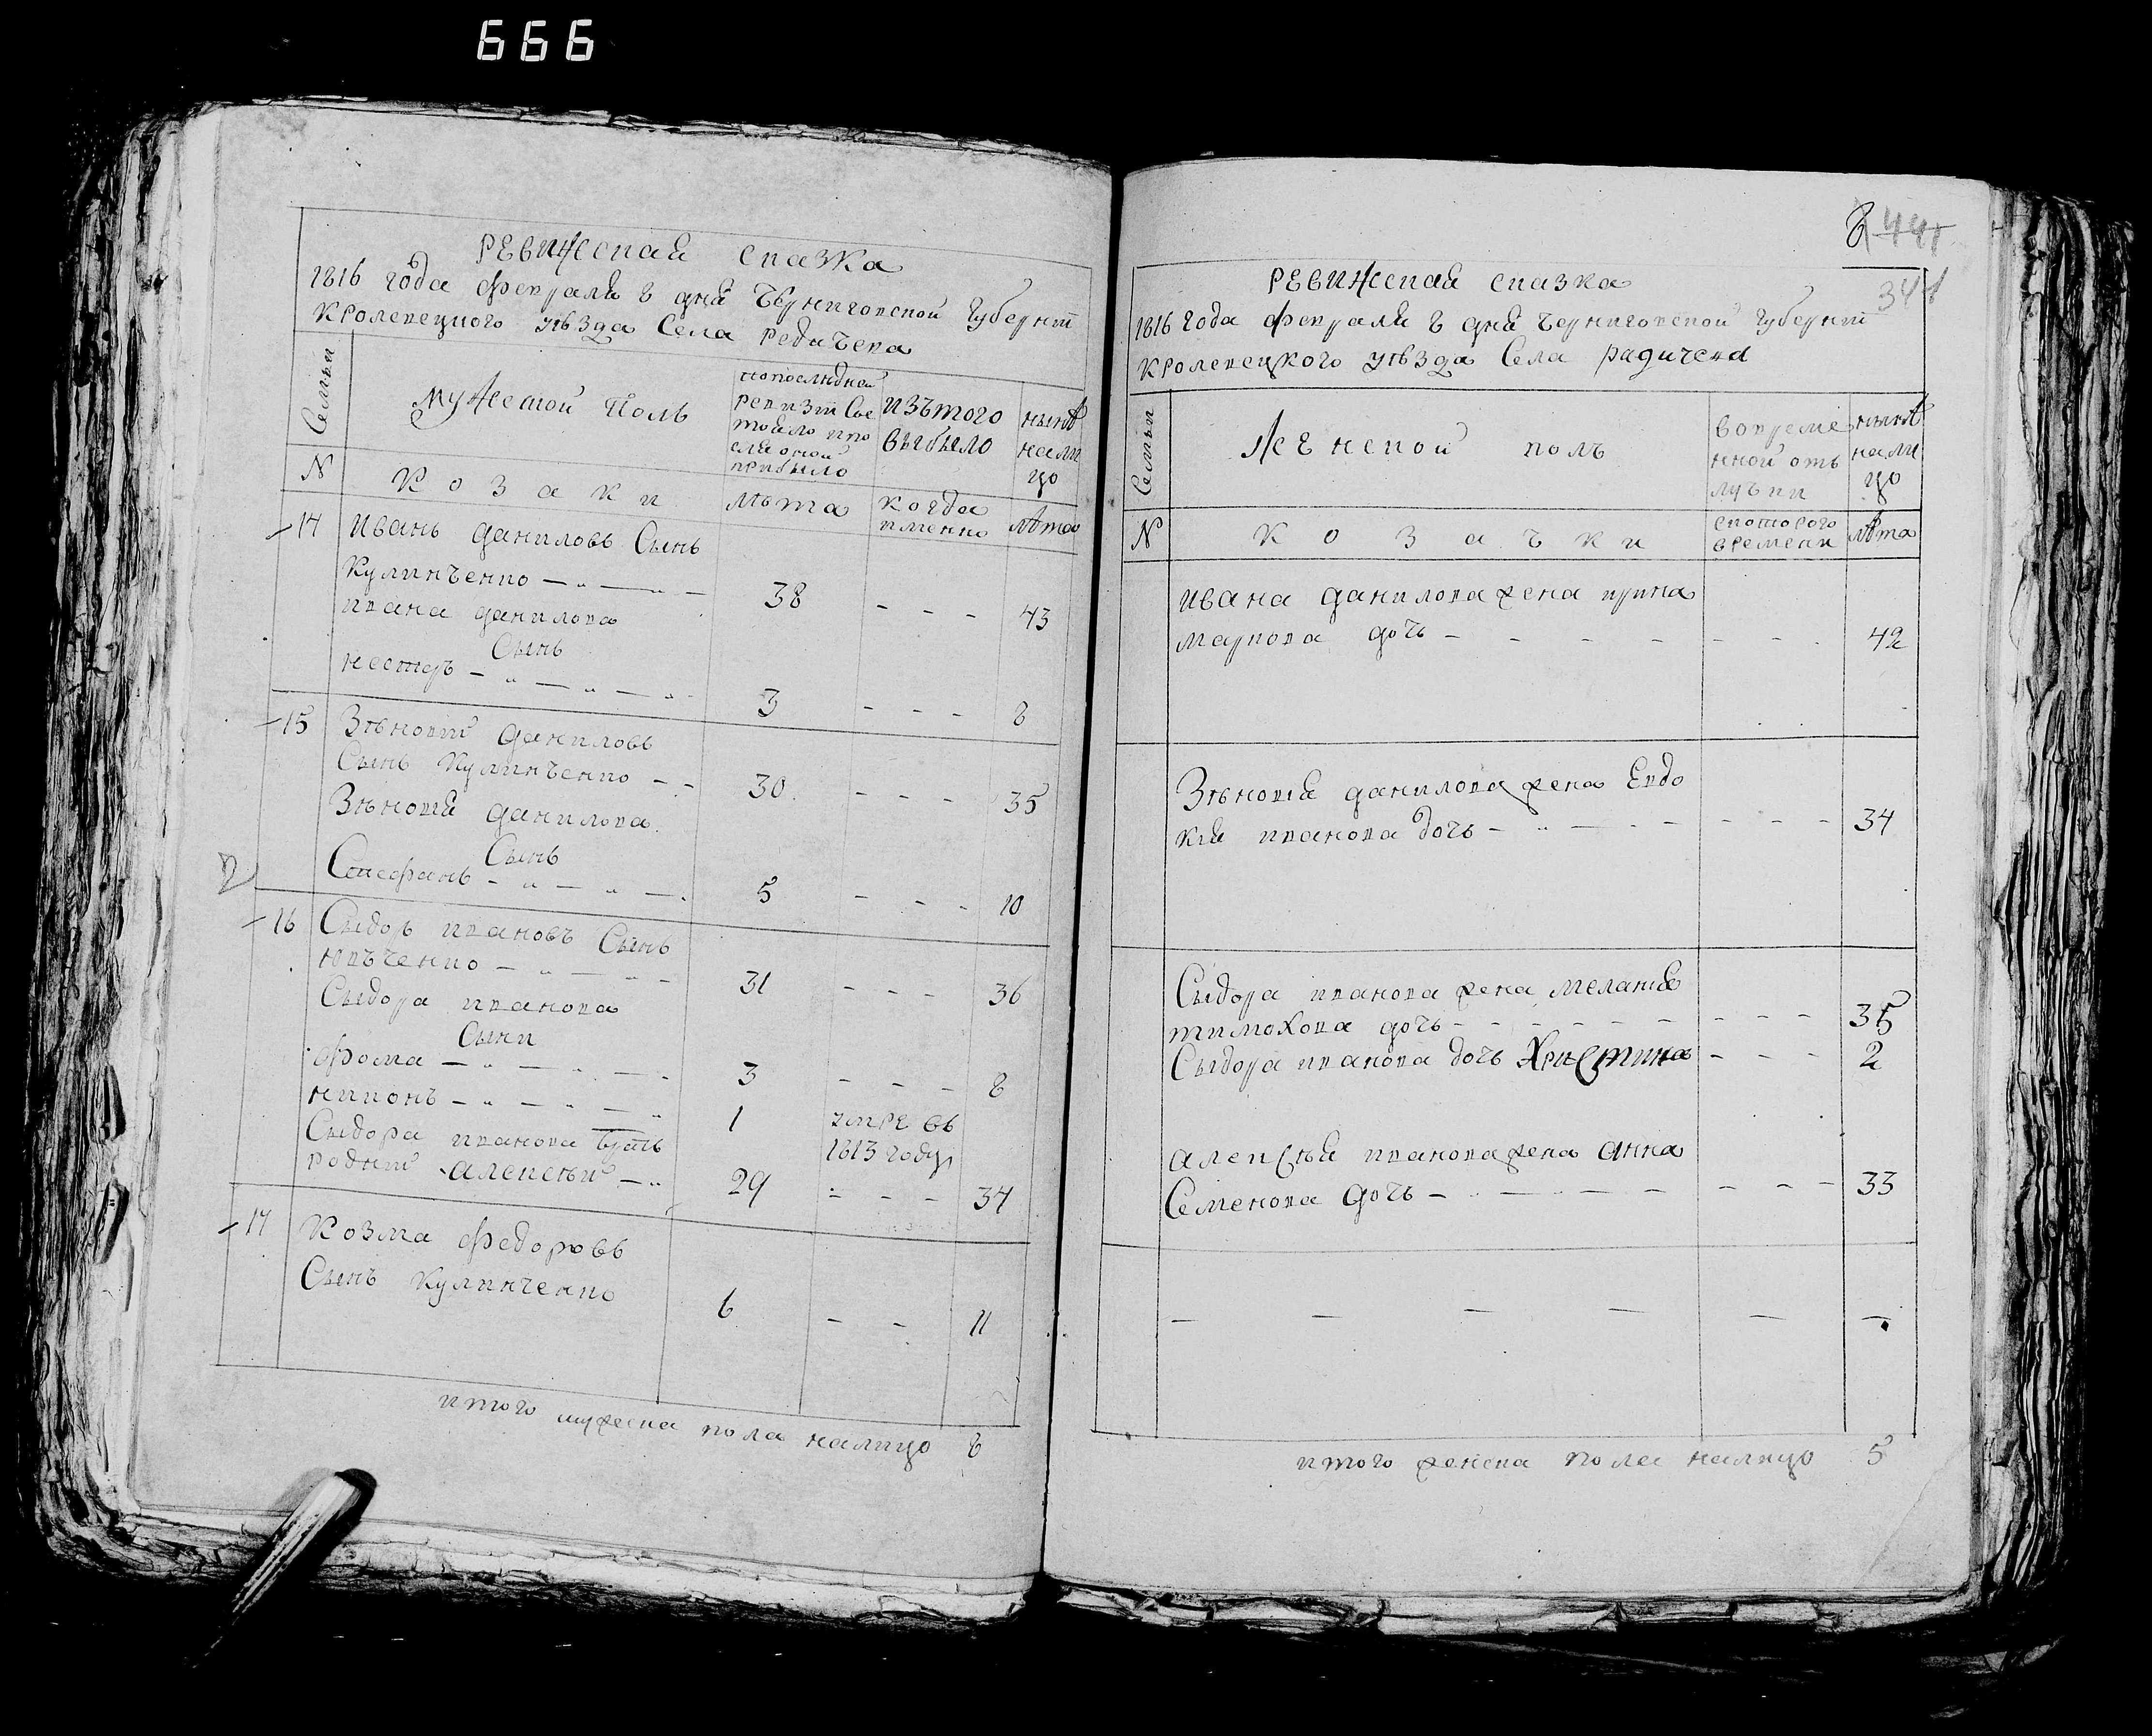 666
Ревижская сказка
1816 года февраля 8 дня Черниговской губернїи
Кролевецкого уѣзда Села Редичева
Семьи
мужеской Полъ
попоследней ревизїи Состояло ипослѣ оной прибыло
изътого выбыло
нынѣ налицо
N
Козаки
лѣта
когда имянно
лѣта
14 Иванъ даниловъ Сынъ
Кулинченко 38 43
ивана данилова
Сынъ
нестеръ 3 8
15 Зѣновїй даниловъ
Сынъ Кулинченко 30 35
Зѣновїя данилова
Сынъ
Стефанъ 5 10
16 Сыдоръ ивановъ Сынъ
31 36
Сыдора иванова
Сыни
фома 3 8
1 умре въ
1813 году
Сыдора иванова братъ
роднїй алексѣй 29 34
17 Козма федоровъ
Сынъ Кулинченко 6 11
итого мужеска пола налицо 8
441
344
Ревижская сказка
1816 года февраля 8 дня черниговской губернїи
Кролевецкого уѣзда Села радичева
Семьи
Женской полъ
вовременной отлучки
нынѣ налицо
N
Козачки
скоторого времени
лѣта
ивана данилова жена ирина
маркова дочь 42
Зѣновїя данилова жена Евдо
кїя иванова дочь 34
Сыдора иванова жена меланїя
тимохова дочь 35
Сыдора иванова дочь Христина 2
алексѣя иванова жена анна
Семенова дочь 33
итого женска пола налицо 5